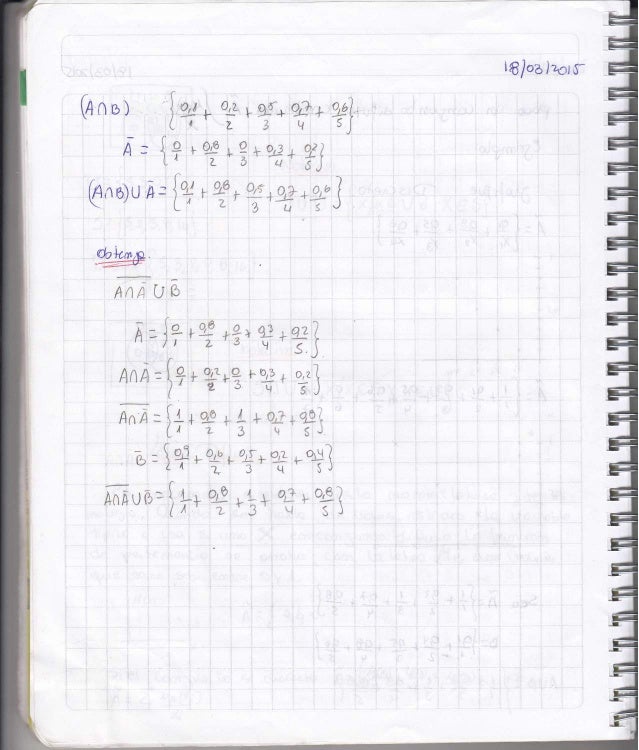 18/03/2015
(A∩B) {0,1/1 + 0,2/2 + 0,5/3 + 0,7/4 + 0,6/5}
Ā = {0/1 + 0,8/2 + 0/3 + 0,3/4 + 0,2/5}
(A∩B)∪Ā = {0,1/1 + 0,8/2 + 0,5/3 + 0,7/4 + 0,6/5}
A∩Ā̅ ∪ B̄
Ā = {0/1 + 0,8/2 + 0/3 + 0,3/4 + 0,2/5}
A∩Ā = {0/1 + 0,2/2 + 0/3 + 0,3/4 + 0,2/5}
A̅∩̅Ā̅ = {1/1 + 0,8/2 + 1/3 + 0,7/4 + 0,8/5}
B̄ = {0,9/1 + 0,6/2 + 0,5/3 + 0,2/4 + 0,4/5}
A̅∩̅Ā̅∪B̄ = {1/1 + 0,8/2 + 1/3 + 0,7/4 + 0,8/5}